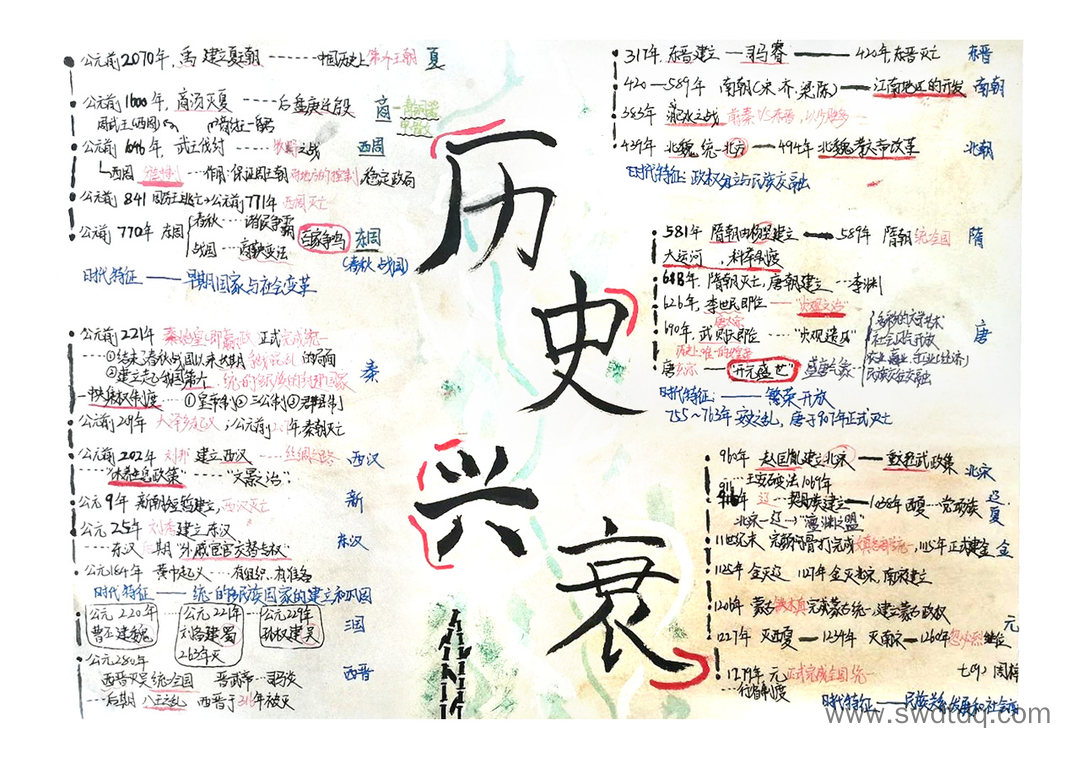 历史兴衰
公元前2070年,禹 建立夏朝 ------ 中国历史上第一个王朝 夏
公元前1600年,商汤灭夏 ---- 后盘庚迁殷 商
公元前1046年,武王伐纣 ---- 牧野之战 西周
西周 分封制 --- 作用:保证周王朝对地方的控制,稳定政局
公元前841 国人暴动→公元前771年 西周灭亡
公元前770年 东周 春秋 --- 诸侯争霸
战国 --- 商鞅变法
百家争鸣
东周
(春秋 战国)
时代特征 —— 早期国家与社会变革
公元前221年 秦始皇 即嬴政 正式完成统一
①结束了春秋战国以来长期 的局面
秦
公元前209年 大泽乡起义;公元前 年秦朝灭亡
公元前202年 刘邦 建立西汉 ---- 丝绸之路 西汉
"休养生息政策" ---- "文景之治"
公元9年 建立,西汉灭亡 新
公元25年 刘秀 建立东汉
---- 东汉 后期 "外戚宦官交替专权" 东汉
公元184年 黄巾起义 --- 有组织、有准备
时代特征 —— 统一的多民族国家的建立和巩固
公元220年
曹丕建魏
公元221年
刘备建蜀
263年灭
公元229年
孙权建吴
三国
公元280年
西晋灭吴 统全国 晋武帝 -- 司马炎 西晋
--- 后期 八王之乱 西晋于316年被灭
317年 东晋建立 — 司马睿 —— 420年,东晋灭亡 东晋
420—589年 南朝(宋、齐、梁、陈)— 江南地区的开发 南朝
383年 淝水之战 前秦VS东晋,以少胜多
439年 北魏 统一北方 — 494年 北魏孝文帝改革 北朝
时代特征:政权分立与民族交融
581年 隋朝由杨坚建立 —— 589年 隋朝统一全国 隋
大运河,科举制度
618年 隋朝灭亡,唐朝建立 --- 李渊
626年 李世民即位 ---- "贞观之治"
唐太宗
690年 武则天即位 ----
唐
唐玄宗 —— "开元盛世"
时代特征:—— 繁荣开放
755~763年 安史之乱,唐于907年正式灭亡
960年 赵匡胤建立北宋 —— 重文轻武政策 北宋
王安石变法1069年
916年 辽 — 契丹族建立 — 1038年 西夏 — 党项族 辽 夏
北宋—辽→"澶渊之盟"
11世纪末 完颜阿骨打完成女真各部统一,1115年正式建金 金
1125年 金灭辽 1127年 金灭北宋,南宋建立
1206年 蒙古 铁木真完成蒙古统一,建立蒙古政权
1227年 灭西夏 — 1234年 灭 — 1260年忽必烈继位 元
1279年 元 正式完成全国统一
--- 行省制度
时代特征:——民族关系发展和社会
www.swdtdq.com